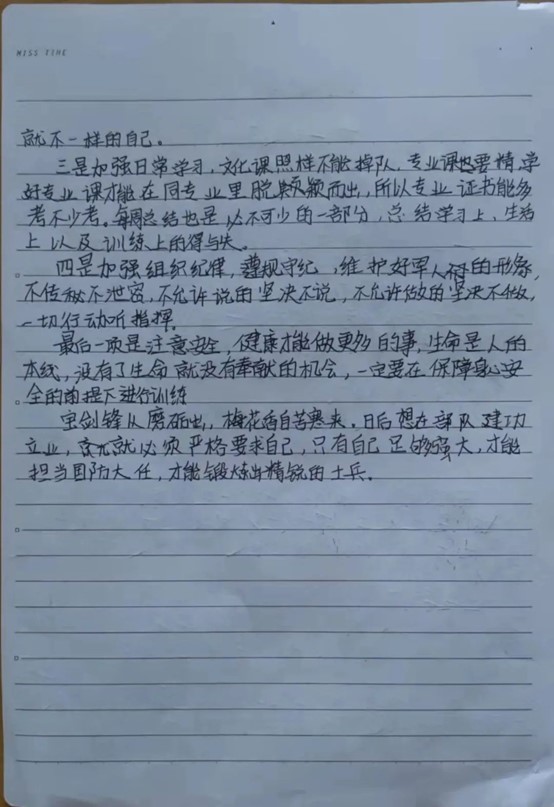 MISS TIME
就不一样的自己。
三是加强日常学习，文化课照样不能掉队，专业课也要精，学
好专业课才能在同专业里脱颖而出，所以专业证书能多
考不少考。每周总结也是必不可少的一部分，总结学习上、生活
上以及训练上的得与失。
四是加强组织纪律，遵规守纪，维护好军人的形象，
不传秘不泄密，不允许说的坚决不说，不允许做的坚决不做，
一切行动听指挥。
最后一项是注意安全，健康才能做更多的事，生命是人的
本线，没有了生命就没有奉献的机会，一定要在保障身心安
全的前提下进行训练。
宝剑锋从磨砺出，梅花香自苦寒来。日后想在部队建功
立业，就必须严格要求自己，只有自己足够强大，才能
担当国防大任，才能锻炼出精锐的士兵。